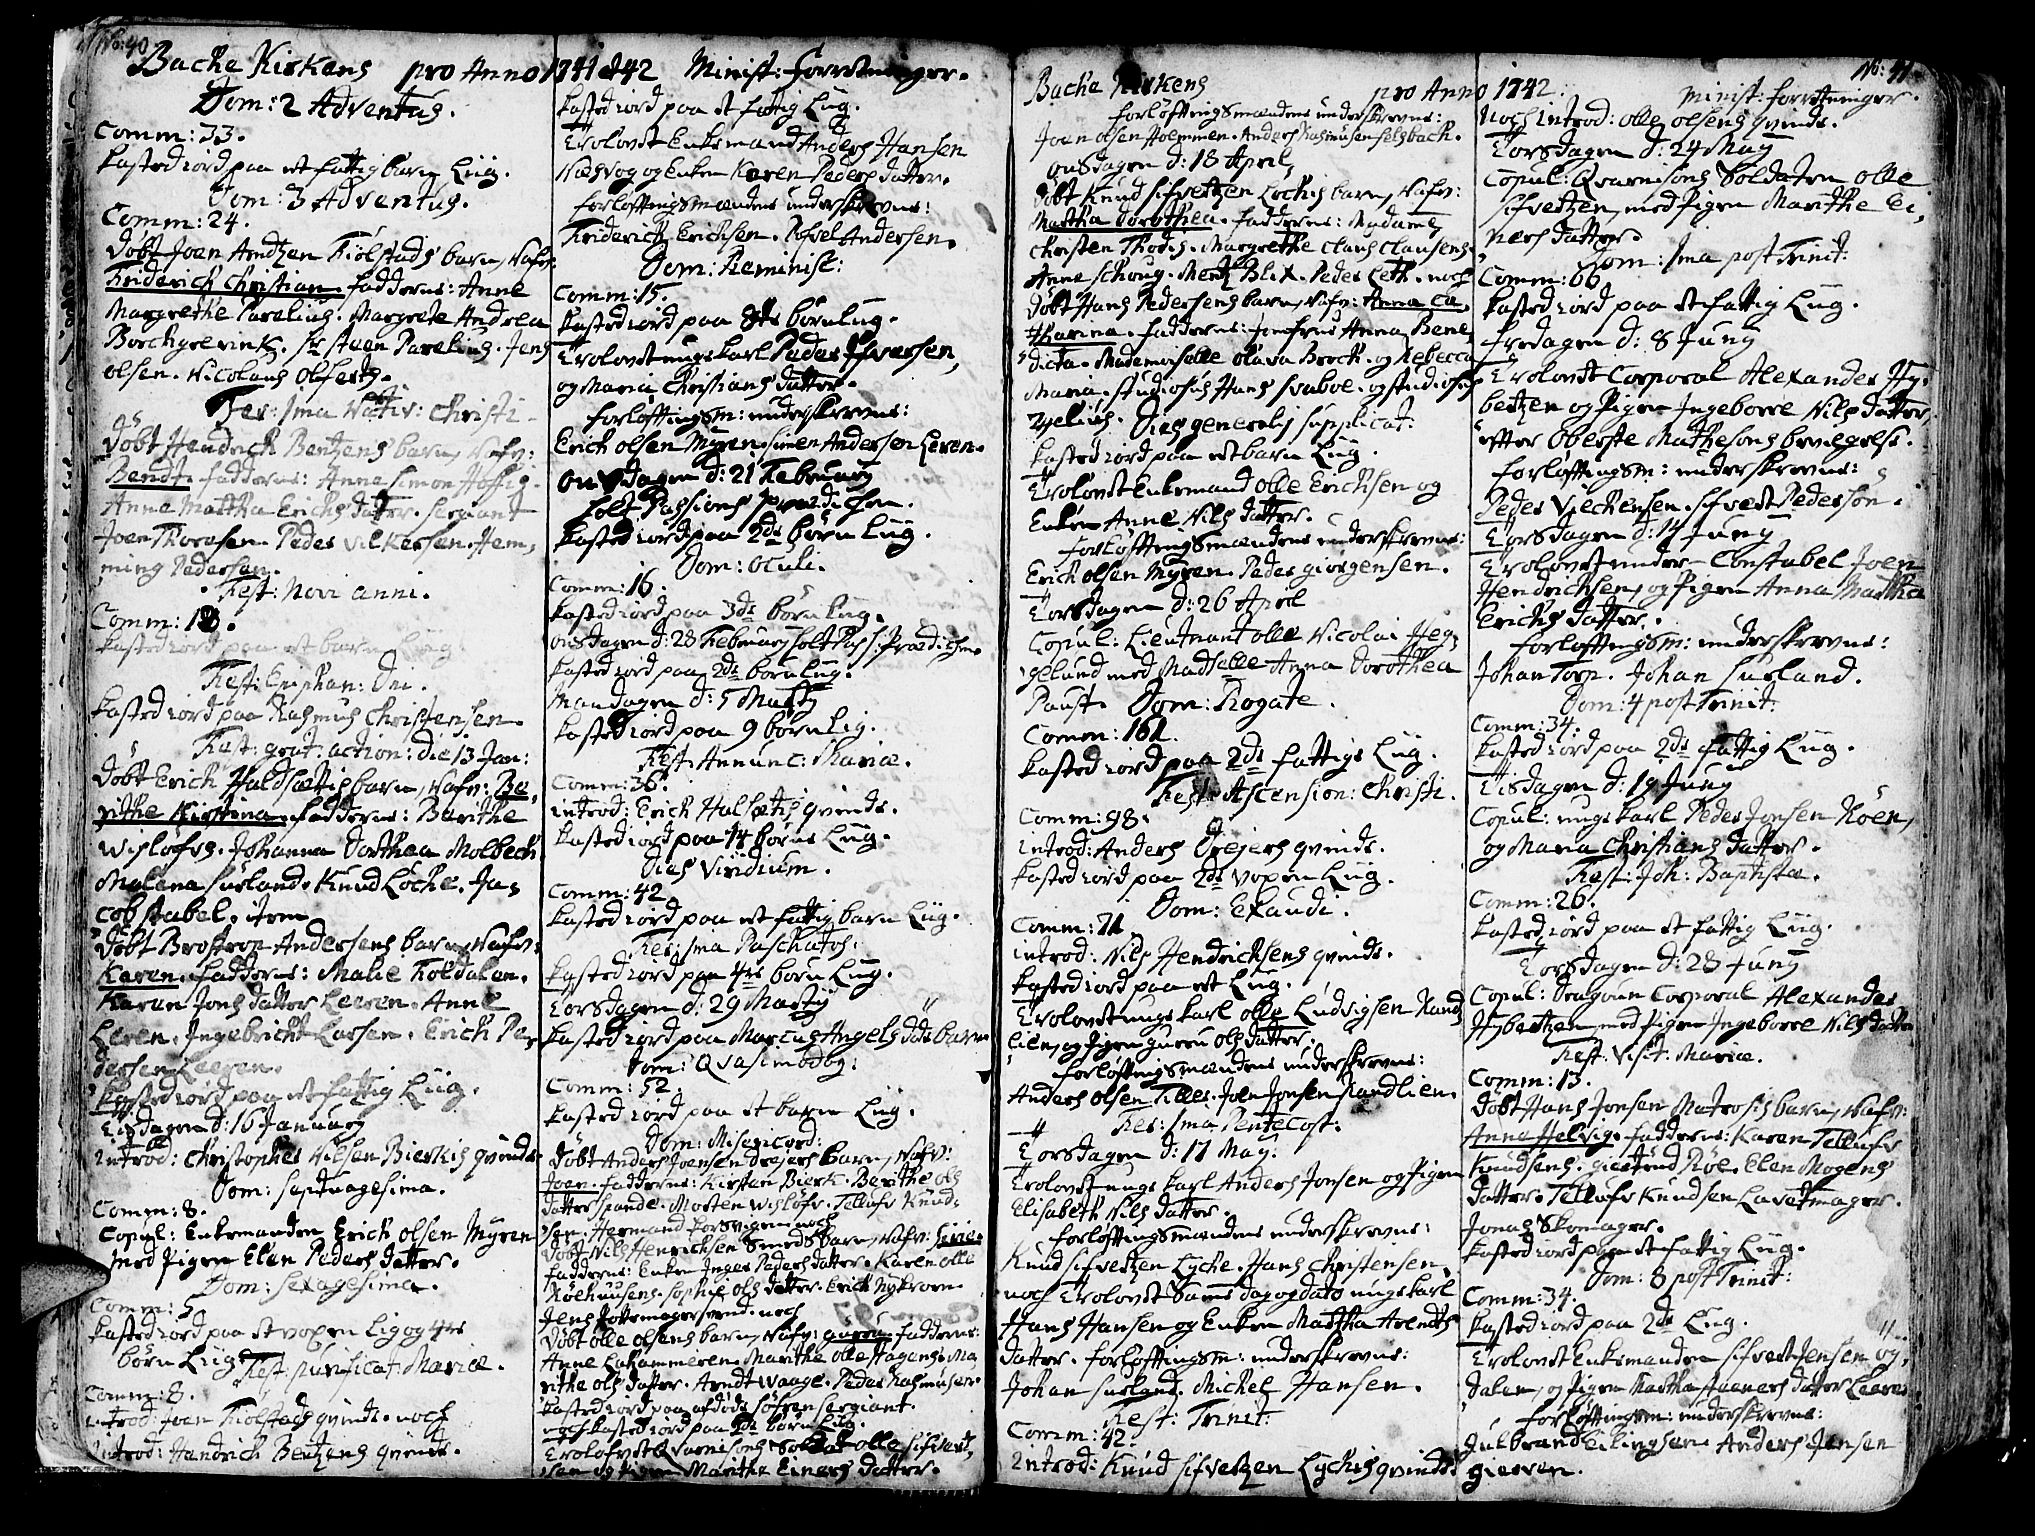 No: 40
Bache Kirkens pro Anno 1741 & 42 Minist: Forretninger.
Dom: 2 Adventus.
Comm: 33.
Kasted iord paa et fattig barn Liig.
Dom: 3 Adventus.
Comm: 24.
Döbt Joen Arntzen Fiölstads barn, Nafn:
Friderich Christian. Fadderne: Anne
Margrethe Parelius. Margrete Andrea
Borchgrevink. Sr Steen Parelius. Jens
Olsen. Nicolaus Olfertz.
Fer: 1ma Nativ: Christi
Döbt Hendrich Bentzens barn, Nafn:
Bendt. Fadderne: Anne Simon Hoffis
Anne Martha Erichs datter. Sergiant
Joen Thoresen. Peder Vilkersen. Hem,
ming Pedersen.
Fest: Novi anni.
Comm: 18.
Kasted iord paa et barn Liig.
Fest: Epiphan: Dni.
Kasted iord paa Rasmus Christensen.
Fest: grat: action: die 13 Jan:
Döbt Erich Haldsættes barn, Nafn: Be,
rithe Kirstina. Fadderne: Barithe
Wislöfvs. Johanna Dorthea Molbech
Malena Surland. Knud Loche. Ja,
cob Stabel. item
Döbt Brostrop Andersens barn, Nafn:
Karen. Fadderne: Malie Foldalen.
Karen Jons datter Leeren. Anne
Leren. Ingebricht Larsen. Erich Pe,
dersen Leeren.
Kasted iord paa et fattig Liig.
Tisdagen d: 16 January
introd: Christopher Nilsen Bierkis qvinde.
Dom: Septuagesima.
Comm: 8.
Copul: Enkemanden Erich Olsen Myren
med Pigen Elen Peders datter.
Dom: Sexagesima.
Comm: 5
Kasted iord paa et voxen Lig og 4re
börn Liig.
Fest: Purificat: Mariæ.
Comm: 8.
introd: Joen Fiolstads qvinde. noch
introd: Hendrich Bentzens qvinde.
Kasted iord paa et fattig Liig.
Trolovet Enkemand Anders Hansen
Næsvog og Enken Karen Peders datter.
Forlöftingsmændene underskrevne:
Friderich Erichsen. Pofvel Andersen.
Dom: Reminisc:
Comm: 15.
Kasted iord paa 8te börn Liig.
Trolovet ungkarl Peder Ifversen,
og Maria Christians datter.
Forlöftingsm: underskrevne:
Erich Olsen Myren. Simen Andersen Leren.
Onsdagen d: 21 February
holt Passions Prædichen.
Kasted iord paa 2de börn Liig.
Dom: Oculi.
Comm: 16.
Kasted iord paa 3de börn Liig.
Onsdagen d: 28 February holt Pass: Prædichen
Kasted iord paa 2de börn Liig.
Mandagen d: 5 Marty
Kasted iord paa 9 börn Lig.
Fest: Annunc: Mariæ.
Comm: 36.
introd: Erich Halsætes qvinde.
Kasted iord paa 14 börns Liig.
Dies Viridium.
Comm: 42
Kasted iord paa et fattig barn Liig.
Fer: 1ma Paschatos:
Kasted iord paa 4re börn Liig.
Torsdagen d: 29 Marty
Kasted iord paa Marcus Angels döde barn
Dom: Qvasimodog:
Comm: 52.
Kasted iord paa et barn Liig.
Dom: Misericord:
Döbt Anders Joensen Drejers barn, Nafn:
Joen. Fadderne: Kirsten Bierk. Berithe Ols
datter Spande. Morten Wislöfv. Tellufv Knud,
sen. Hermand Forsvigen noch
Döbt Nils Henrichsen Smeds barn, Nafn: Sirie
Fadderne: Enken Inger Peders datter. Karen Olle
Röehuusens. Sophie Ols datter. Erich Nykroen
Jens Pottemagersvend. noch
Döbt Olle Olsens barn, Nafn: Guren. Fadderne:
Anne Lohammeren. Marithe Olle Hagens. Ma,
rithe Ols datter. Arndt Waage. Peder Rasmusen.
Kasted iord paa afdöde Söfren Sergiant.
noch Kasted iord paa 2de börn Liig.
Trolofvet Qvarnisons Soldat Olle Sifvert,
sen og Pigen Marithe Einers datter.
No: 41
Bache Kirkens pro Anno 1742. Minist: Forretninger.
Forlöftingsmændene underskrevne:
Joen Olsen Hoemmen. Anders Rasmusen Selsbach.
Onsdagen d: 18 April,
Döbt Knud Sifvertzen Lochis barn, Nafn:
Martha Dorothea. Fadderne: Madame
Christen Thodes. Margrethe Claus Clausens.
Anne Schoug. Mentz Blix. Peder Leth. noch
Döbt Hans Pedersens barn, Nafn: Anna Ca,
tharina. Fadderne: Jomfrue Anna Bene,
dicta. Mademoiselle Olava Broch. og Rebecca
Maria. Studiosus Hans Svaboe. og studiosus
Zelius. Dies generalis supplicat:
Kasted iord paa et barn Liig.
Trolovet Enkemand Olle Erichsen og
Enken Anne Nils datter.
Forlöftingsmændene underskrevne:
Erich Olsen Myren. Peder Giörgensen.
Torsdagen d: 26 April
Copul: Lieutnant Olle Nicolai Heg,
gelund med Madselle Anna Dorothea
Paust. Dom: Rogate.
Comm: 161.
Kasted iord paa 2de fattigs Liig.
Fest: Ascension: Christi.
Comm: 98.
introd: Anders Drejers qvinde.
Kasted iord paa 2de voxen Liig.
Dom: Exaudi.
Comm: 71.
introd: Nils Hendrichsens qvinde.
Kasted iord paa et Liig.
Trolovet ungkarl Olle Ludvigsen Rand,
lien, og Pigen Guren Ols datter.
Forlöftingsmændene underskrevne:
Anders Olsen Tiller. Joen Jonsen Randlien.
Fer: 1ma Pentecost:
Torsdagen d: 17 May.
Trolovet ungkarl Anders Jonsen og Pigen
Elisabeth Nils datter.
Forlöftingsmændene underskrevne:
Knud Sifvertzen Lyche. Hans Christensen.
noch Trolovet Samme dag og dato ungkarl
Hans Hansen og Enken Martha Arendts
datter. Forlöftingsm: underskrevne:
Johan Surland. Michel Hansen.
Fest: Trinit:
Comm: 42.
introd: Knud Sifvertzen Lychis qvinde
Noch introd: Olle Olsens qvinde.
Torsdagen d: 24 May
Copul: Qvarnisons Soldaten Olle
Sifvertzen, med Pigen Marithe Ei,
ners datter.
Dom: 1ma post Trinit:
Comm: 66
Kasted iord paa et fattig Liig.
Fredagen d: 8 Juny
Trolovet Corporal Alexander Hy,
bertzen og Pigen Ingeborre Nils datter,
efter Oberste Mathesons bevægelse.
Forlöftingsm: underskrevne:
Peder Vichensen. Sifvert Pedersön.
Torsdagen d: 14 Juny
Trolovet under Constabel Joen
Hendrichsen, og Pigen Anna Martha
Erichs datter.
Forlöftingsm: underskrevne:
Johan Torp. Johan Surland.
Dom: 4 post Trinit:
Comm: 34.
Kasted iord paa 2de fattig Liig.
Tisdagen d: 19 Juny
Copul: ungkarl Peder Jonsen Röen,
og Maria Christians datter.
Fest: Joh: Baptistæ.
Comm: 26.
Kasted iord paa et fattig Liig.
Torsdagen d: 28 Juny
Copul: Dragoun Corporal Alexander
Hybertzen med Pigen Ingeborre Nils datter
Fest: Visit: Mariæ.
Comm: 13.
Döbt Hans Jonsen Matrosis barn, Nafn:
Anne Helvig. Fadderne: Karen Tellufv
Knudsens. Giertrud Röe. Elen Mogens
datter. Tellufv Knudsen Lavetmager.
Jonas Skomager.
Kasted iord paa et fattig Liig.
Dom: 8 post Trinit:
Comm: 34.
Kasted iord paa 2de Liig.
Trolovet Enkemanden Sifvert Jensen Og,
dalen, og Pigen Martha Steeners datter Leeren
Forlöftingsm: underskrevne:
Gulbrand Eilingsen. Anders Jensen
Gierven.